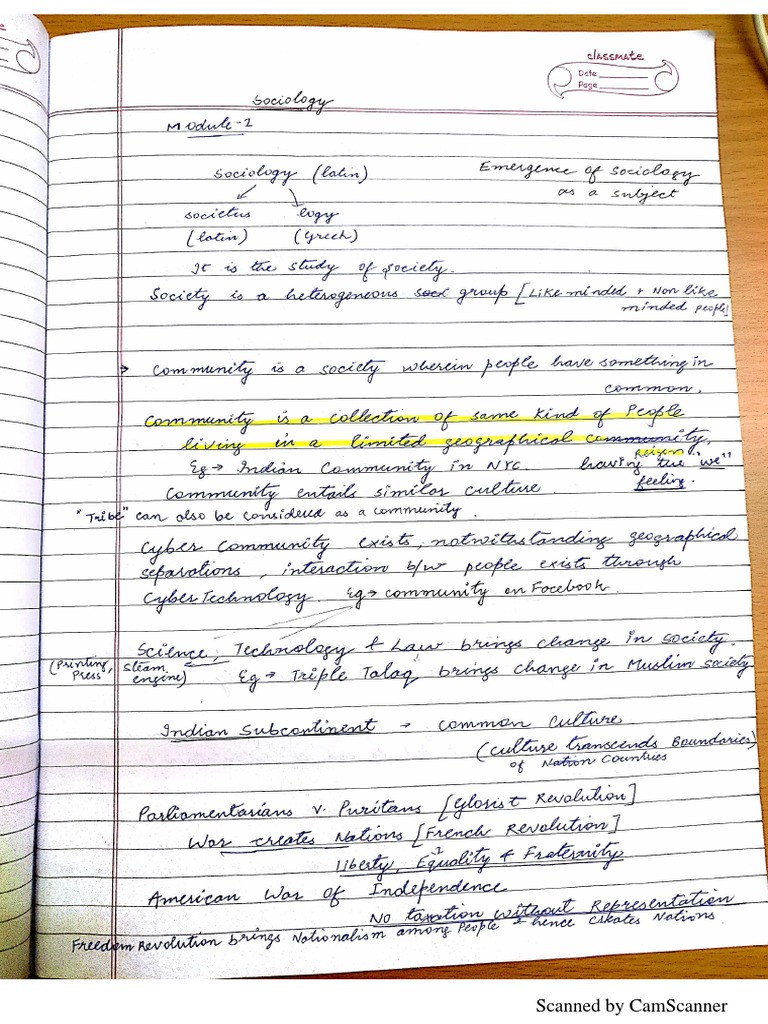 classmate
Date
Page
Sociology
Module-1
Sociology (latin)
Emergence of sociology
as a subject
societus logy
(latin) (Greek)
It is the study of society.
Society is a heterogeneous group [Like minded + Non like
minded people]
→ Community is a society wherein people have something in
common.
Community is a collection of same kind of People
living in a limited geographical community,
region
Eg → Indian Community in NYC. having the "we"
Community entails similar culture feeling.
"Tribe" can also be considered as a community.
Cyber Community exists, notwithstanding geographical
separations, interaction b/w people exists through
Cyber Technology. Eg → community on Facebook.
Science, Technology & Law brings change in society
(Printing Press, Steam engine) Eg → Triple Talaq brings change in Muslim society
Indian Subcontinent → common culture
(culture transcends Boundaries)
of Nation Countries
Parliamentarians v. Puritans [Glorist Revolution]
War creates Nations [French Revolution]
Liberty, Equality & Fraternity
American War of Independence
No taxation without Representation
Freedom Revolution brings Nationalism among People & hence creates Nations.
Scanned by CamScanner